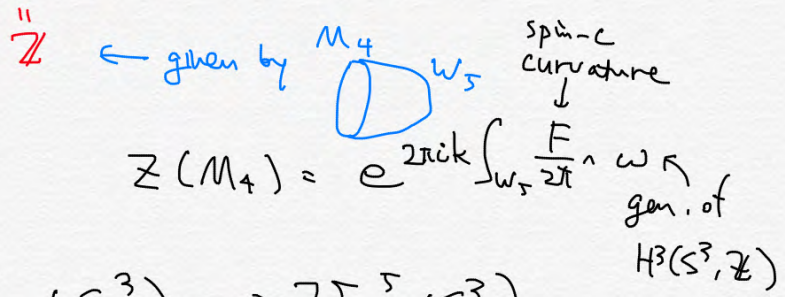 "
ℤ ← given by M₄ W₅
spin-c
curvature
↓
Z(M₄) = e^{2πik ∫_{W₅} F/2π ∧ ω}
gen. of
H³(S³, ℤ)